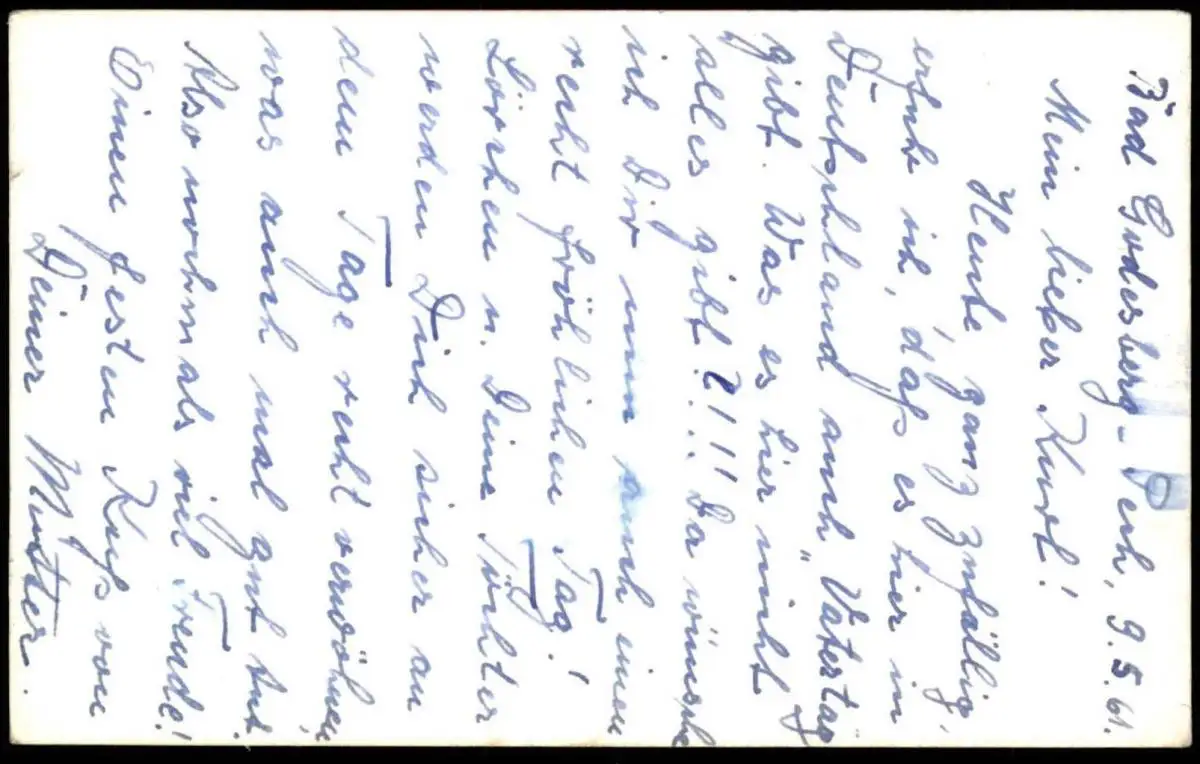 Bad Godesberg-Pech, 9.5.61.
Mein lieber Kurt!
Heute, ganz zufällig,
erfuhr ich, daß es hier in
Deutschland auch "Vatertag
gibt. Was es hier nicht
alles gibt?!!! Da wünsche
ich Dir nun auch einen
recht fröhlichen Tag!
Lörchen u. Deine Töchter
werden Dich sicher an
dem Tage recht verwöhnen,
was auch mal gut tut.
Also nochmals viel Freude!
Einen festen Kuß von
Deiner Mutter.